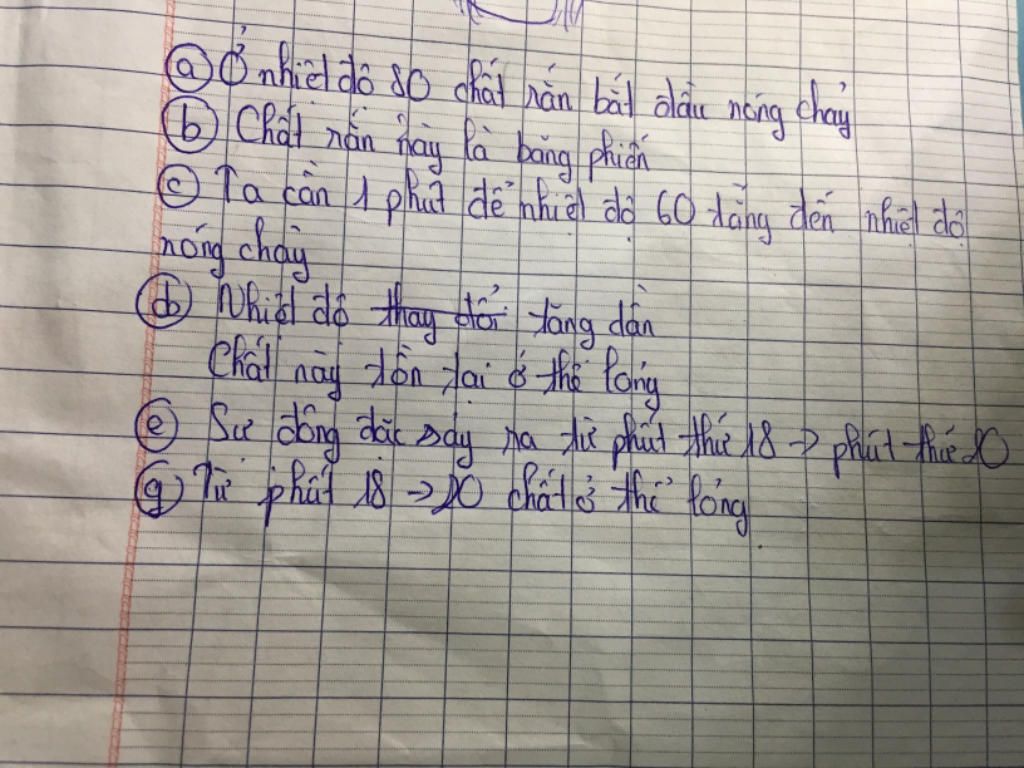 a Ở nhiệt độ 80 chất rắn bắt đầu nóng chảy
b Chất rắn này là băng phiến
c Ta cần 1 phút để nhiệt độ 60 tăng đến nhiệt độ
nóng chảy
d Nhiệt độ thay đổi tăng dần
Chất này tồn tại ở thể lỏng
e Sự đông đặc xảy ra từ phút thứ 18 → phút thứ 20
g Từ phút 18 → 20 chất ở thể lỏng